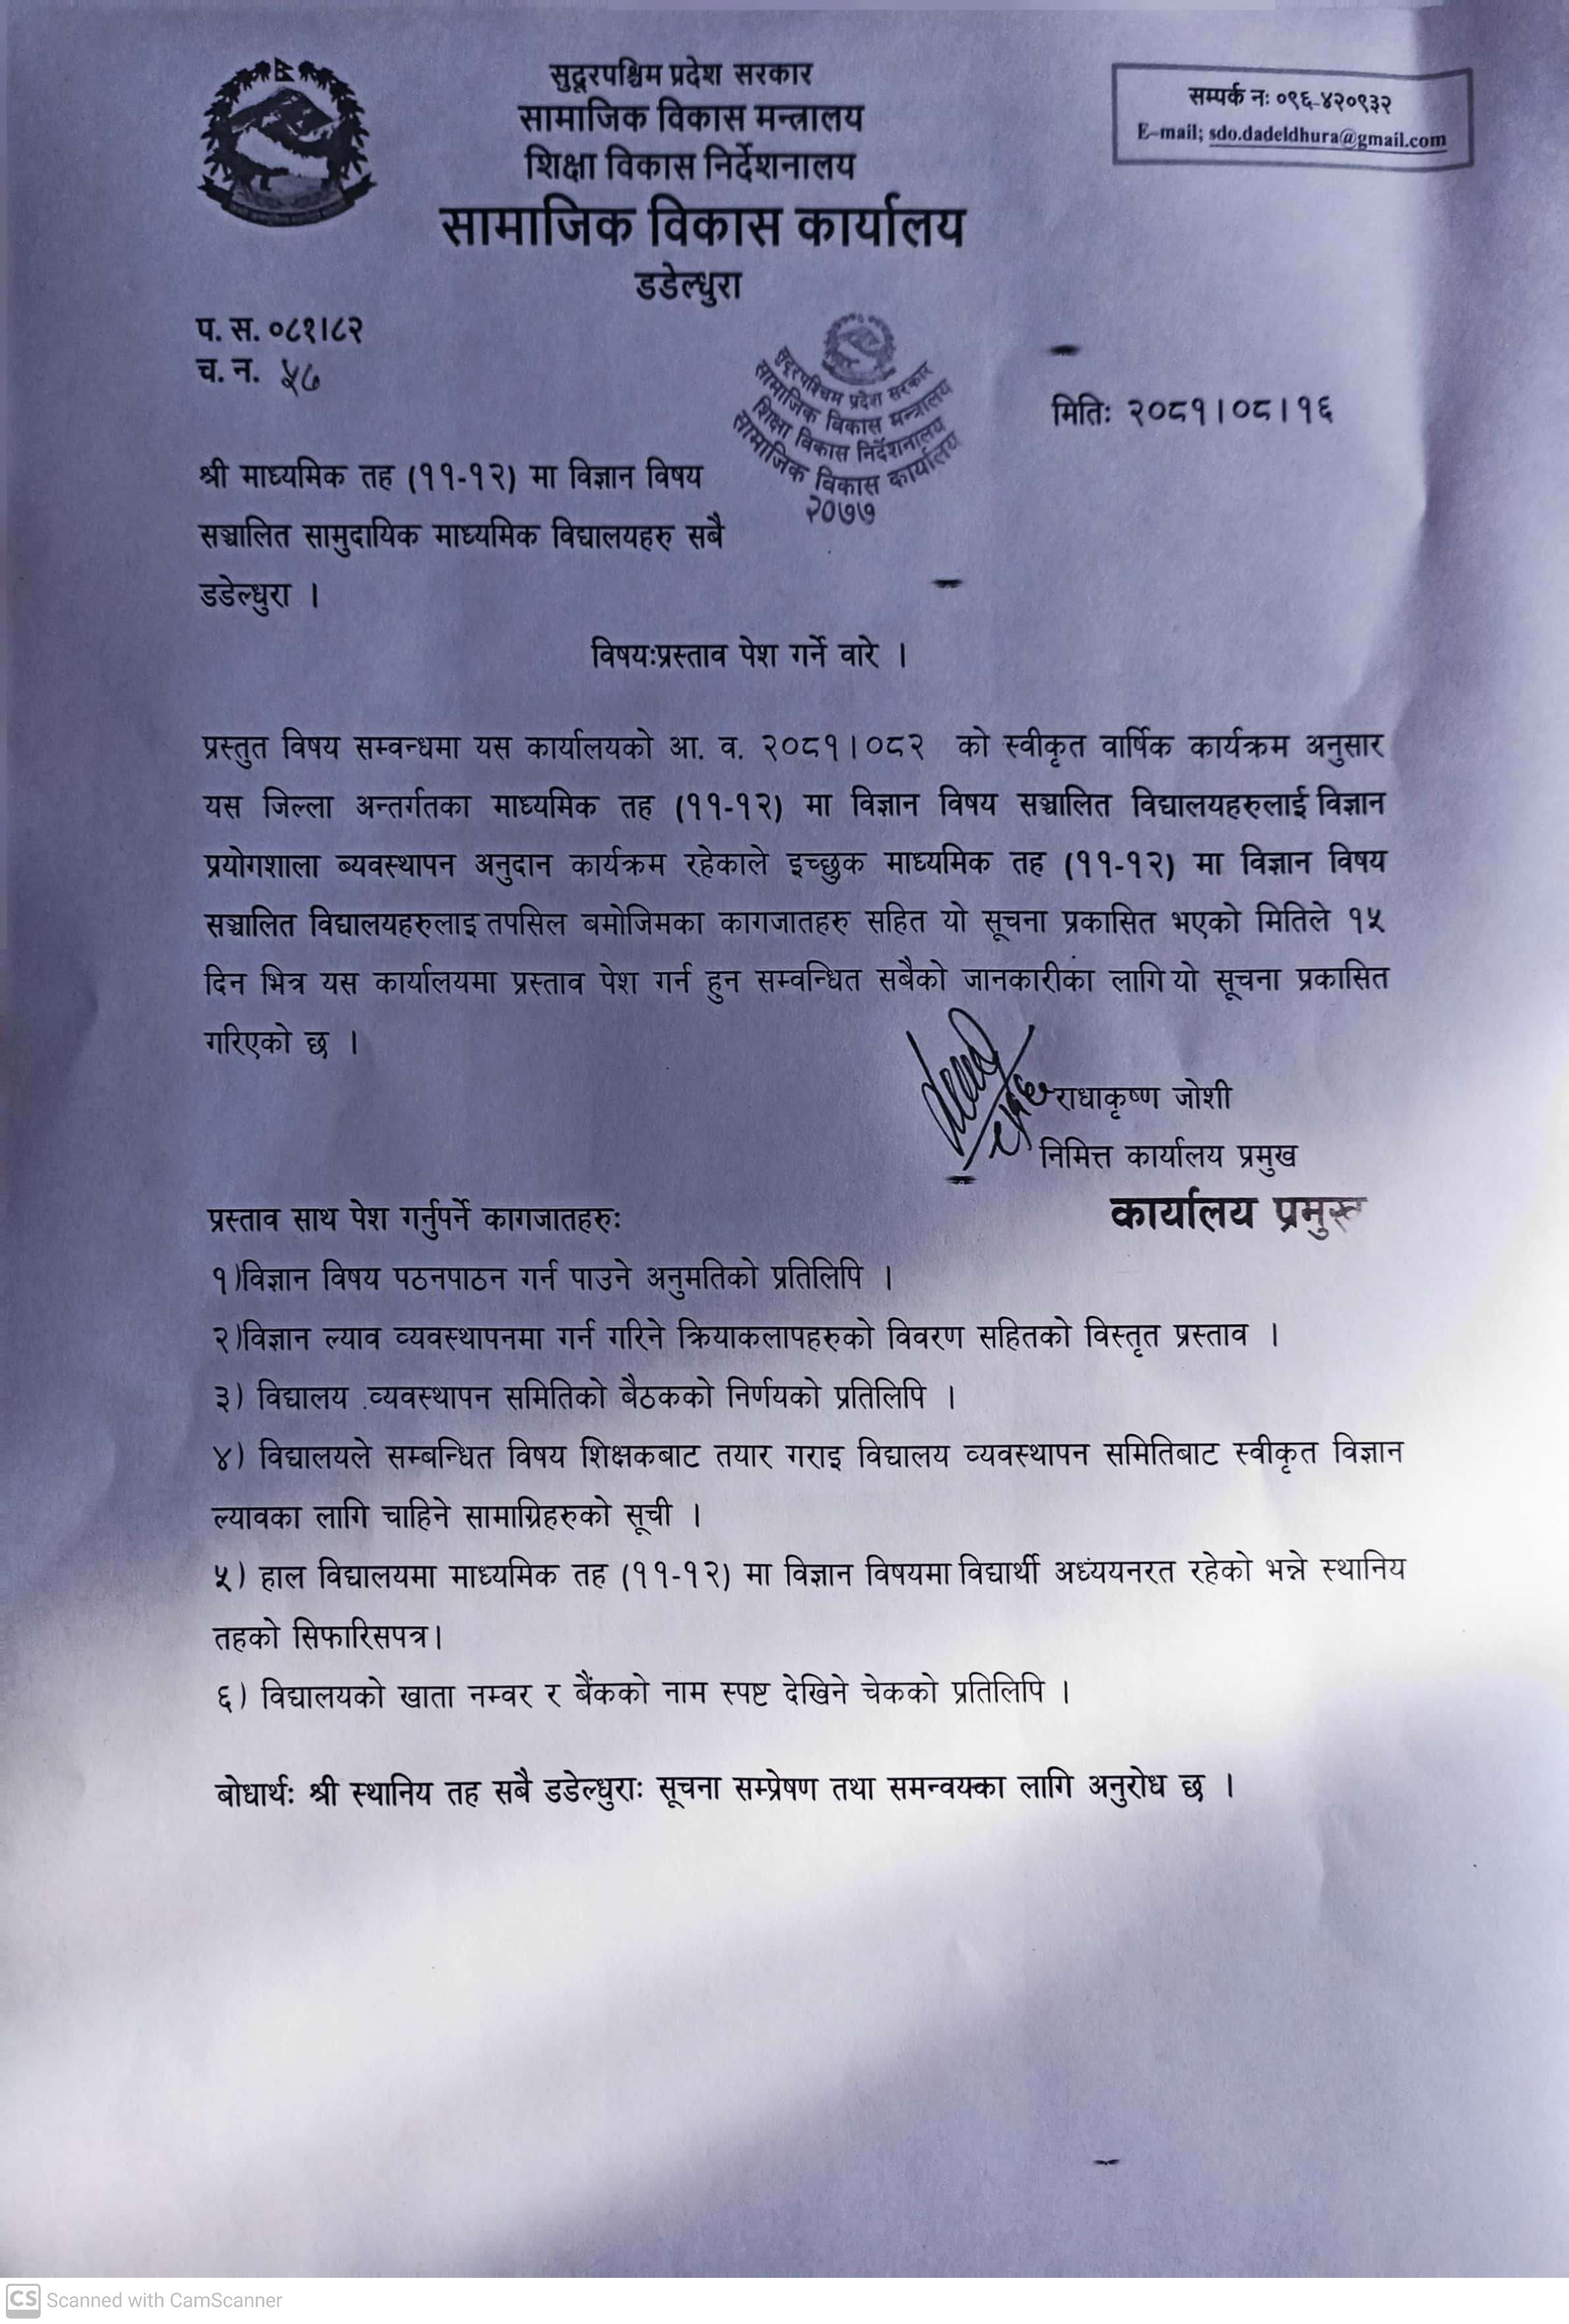 सुदूरपश्चिम प्रदेश सरकार
सामाजिक विकास मन्त्रालय
शिक्षा विकास निर्देशनालय
सामाजिक विकास कार्यालय
डडेल्धुरा
सम्पर्क नः ०९६-४२०९३२
E-mail; sdo.dadeldhura@gmail.com
प. स. ०८१।८२
च. न. ५७
सुदूरपश्चिम प्रदेश सरकार
सामाजिक विकास मन्त्रालय
शिक्षा विकास निर्देशनालय
सामाजिक विकास कार्यालय
२०७७
मितिः २०८१।०८।१६
श्री माध्यमिक तह (११-१२) मा विज्ञान विषय
सञ्चालित सामुदायिक माध्यमिक विद्यालयहरु सबै
डडेल्धुरा ।
विषयःप्रस्ताव पेश गर्ने वारे ।
प्रस्तुत विषय सम्वन्धमा यस कार्यालयको आ. व. २०८१।०८२ को स्वीकृत वार्षिक कार्यक्रम अनुसार
यस जिल्ला अन्तर्गतका माध्यमिक तह (११-१२) मा विज्ञान विषय सञ्चालित विद्यालयहरुलाई विज्ञान
प्रयोगशाला ब्यवस्थापन अनुदान कार्यक्रम रहेकाले इच्छुक माध्यमिक तह (११-१२) मा विज्ञान विषय
सञ्चालित विद्यालयहरुलाइ तपसिल बमोजिमका कागजातहरु सहित यो सूचना प्रकासित भएको मितिले १५
दिन भित्र यस कार्यालयमा प्रस्ताव पेश गर्न हुन सम्वन्धित सबैको जानकारीका लागि यो सूचना प्रकासित
गरिएको छ ।
राधाकृष्ण जोशी
निमित्त कार्यालय प्रमुख
कार्यालय प्रमुख
प्रस्ताव साथ पेश गर्नुपर्ने कागजातहरुः
१)विज्ञान विषय पठनपाठन गर्न पाउने अनुमतिको प्रतिलिपि ।
२)विज्ञान ल्याव व्यवस्थापनमा गर्न गरिने क्रियाकलापहरुको विवरण सहितको विस्तृत प्रस्ताव ।
३) विद्यालय व्यवस्थापन समितिको बैठकको निर्णयको प्रतिलिपि ।
४) विद्यालयले सम्बन्धित विषय शिक्षकबाट तयार गराइ विद्यालय व्यवस्थापन समितिबाट स्वीकृत विज्ञान
ल्यावका लागि चाहिने सामाग्रिहरुको सूची ।
५) हाल विद्यालयमा माध्यमिक तह (११-१२) मा विज्ञान विषयमा विद्यार्थी अध्ययनरत रहेको भन्ने स्थानिय
तहको सिफारिसपत्र।
६) विद्यालयको खाता नम्वर र बैंकको नाम स्पष्ट देखिने चेकको प्रतिलिपि ।
बोधार्थः श्री स्थानिय तह सबै डडेल्धुराः सूचना सम्प्रेषण तथा समन्वयका लागि अनुरोध छ ।
CS Scanned with CamScanner